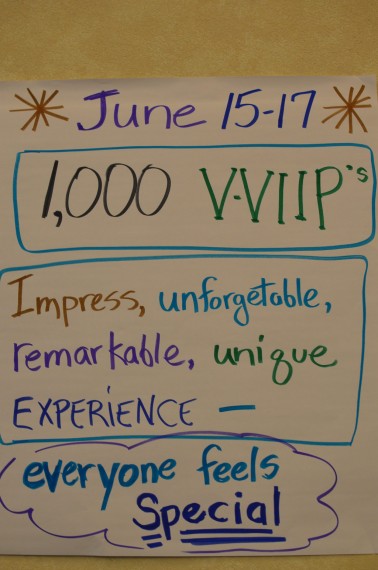 June 15-17
1,000 V-VIIP's
Impress, unforgetable,
remarkable, unique
EXPERiENCE —
everyone feels
Special